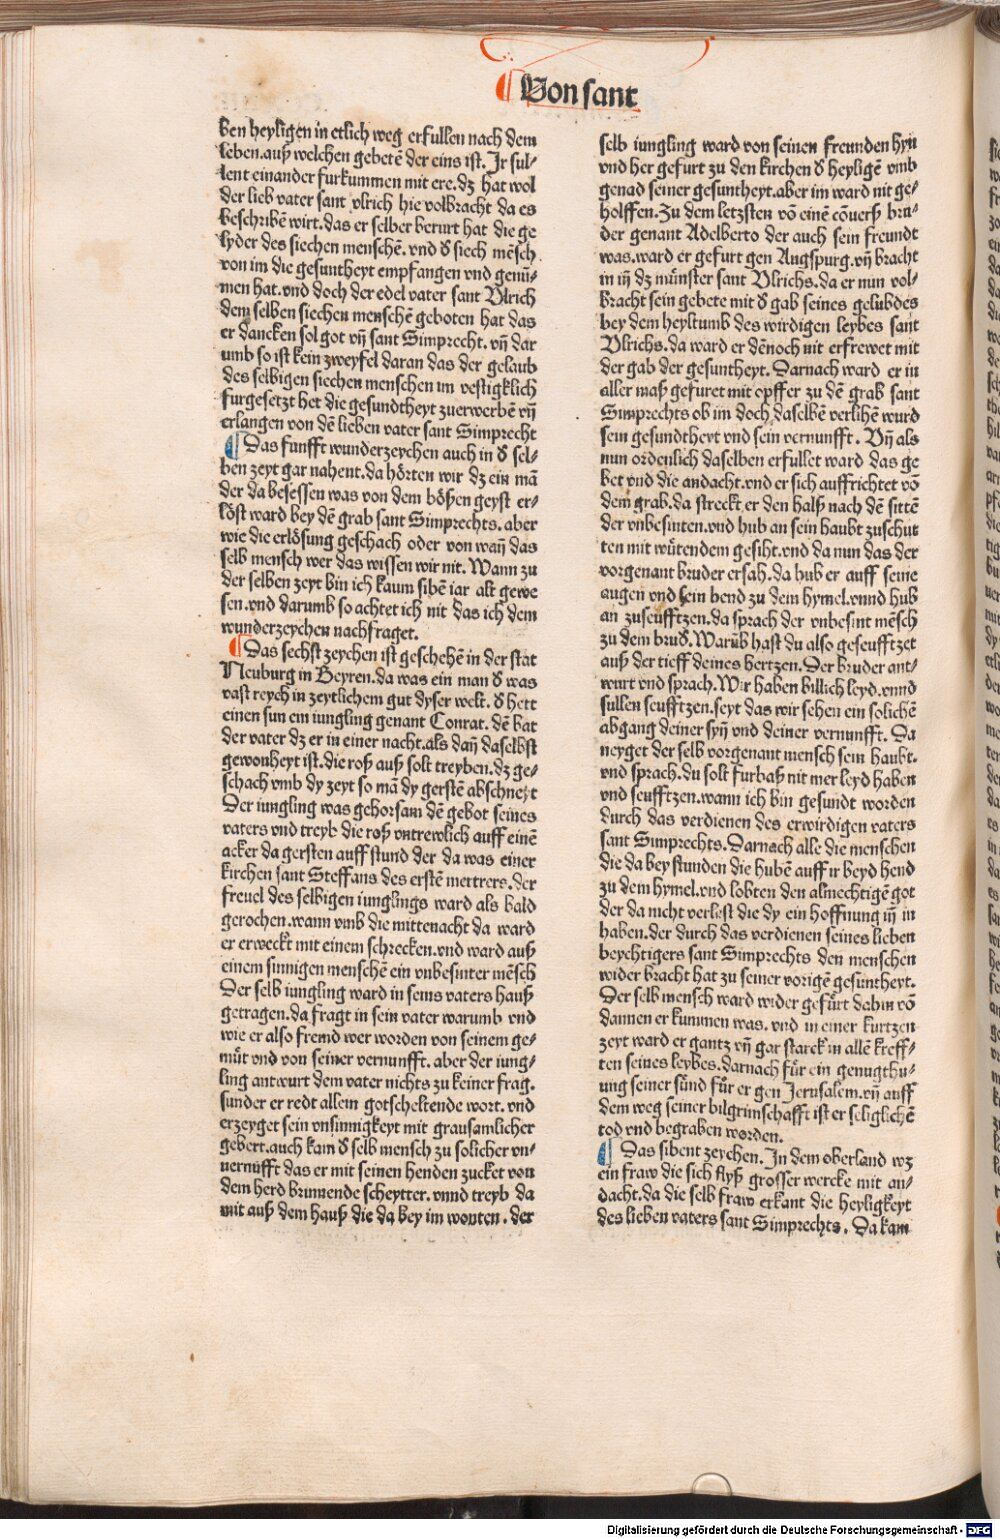 ¶ Von sant
ben heyligen in etlich weg erfullen nach dem
leben.auß welchen gebetē der eins ist. Ir sul⸗
lent einander furkummen mit ere.dz hat wol
der lieb vater sant vlrich hie volbracht da es
beschribē wirt.das er selber berurt hat die ge
lyder des siechen menschē.vnd d̕ siech mēsch
von im die gesuntheyt empfangen vnd genū⸗
men hat.vnd doch der edel vater sant Vlrich
dem selben siechen menschē geboten hat das
er dancken sol got vñ sant Simprecht. vñ dar
umb so ist kein zweyfel daran das der gelaub
des selbigen siechen menschen im vestigklich
furgesetzt het die gesundtheyt zuerwerbē vñ
erlangen von dē lieben vater sant Simprecht
¶ Das funfft wunderzeychen auch in d̕ sel⸗
ben zeyt gar nahent.da hörten wir dz ein mā
der da besessen was von dem bößen geyst er⸗
löst ward bey dē grab sant Simprechts. aber
wie die erlösung geschach oder von wañ das
selb mensch wer das wissen wir nit. Wann zu
der selben zeyt bin ich kaum sibē iar alt gewe
sen.vnd darumb so achtet ich nit das ich dem
wunderzeychen nachfraget.
¶ Das sechst zeychen ist geschehē in der stat
Neuburg in Beyren.da was ein man d̕ was
vast reych in zeytlichem gut dyser welt. d̕ hett
einen sun ein iungling genant Conrat. dē bat
der vater dz er in einer nacht.als dañ daselbst
gewonheyt ist.die roß auß solt treyben.dz ge⸗
schach vmb dy zeyt so mā dy gerstē abschneyt
Der iungling was gehorsam dē gebot seines
vaters vnd treyb die roß vntrewlich auff einē
acker da gersten auff stund der da was einer
kirchen sant Steffans des erstē mertrers.der
freuel des selbigen iunglings ward als bald
gerochen.wann vmb die mittenacht da ward
er erweckt mit einem schrecken.vnd ward auß
einem sinnigen menschē ein vnbesinter mēsch
Der selb iungling ward in seins vaters hauß
getragen.da fragt in sein vater warumb vnd
wie er also fremd wer worden von seinem ge⸗
müt vnd von seiner vernunfft. aber der iung⸗
ling antwurt dem vater nichts zu keiner frag.
sunder er redt allein gotscheltende wort. vnd
erzeyget sein vnsinnigkeyt mit grausamlicher
gebert.auch kam d̕ selb mensch zu solicher vn⸗
uernufft das er mit seinen henden zucket von
dem herd brinnende scheytter. vnnd treyb da
mit auß dem hauß die da bey im wonten. der
selb iungling ward von seinen freunden hyn
vnd her gefurt zu den kirchen d̕ heyligē vmb
genad seiner gesuntheyt.aber im ward nit ge⸗
holffen. Zu dem letzsten vō einē cōuerß bru⸗
der genant Adelberto der auch sein freundt
was.ward er gefurt gen Augspurg.vñ bracht
in iñ dz münster sant Vlrichs.da er nun vol⸗
bracht sein gebete mit d̕ gab seines gelubdes
bey dem heyltumb des wirdigen leybes sant
Vlrichs.da ward er dēnoch nit erfrewet mit
der gab der gesuntheyt. Darnach ward er in
aller maß gefuret mit opffer zu dē grab sant
Simprechts ob im doch daselbē verlihē wurd
sein gesundtheyt vnd sein vernunfft. Vñ als
nun ordenlich daselben erfullet ward das ge
bet vnd die andacht.vnd er sich auffrichtet vō
dem grab.da streckt er den halß nach dē sittē
der vnbesinten.vnd hub an sein haubt zuschut
ten mit wütendem gesiht.vnd da nun das der
vorgenant bruder ersah.da hub er auff seine
augen vnd sein hend zu dem hymel.vnnd hub
an zuseufftzen.da sprach der vnbesint mēsch
zu dem brud̕. Warūb hast du also geseufftzet
auß der tieff deines hertzen. Der bruder ant⸗
wurt vnd sprach. Wir haben billich leyd. vnnd
sullen seufftzen.seyt das wir sehen ein solichē
abgang deiner syñ vnd deiner vernunfft. Da
neyget der selb vorgenant mensch sein haubt.
vnd sprach. du solt furbaß nit mer leyd haben
vnd seufftzen.wann ich bin gesundt worden
durch das verdienen des erwirdigen vaters
sant Simprechts. Darnach alle die menschen
die da bey stunden die hubē auff ir beyd hend
zu dem hymel.vnd lobten den almechtigē got
der da nicht verlest die dy ein hoffnung iñ in
haben.der durch das verdienen seines lieben
beychtigers sant Simprechts den menschen
wider bracht hat zu seiner vorigē gesuntheyt.
Der selb mensch ward wider gefürt dahin vō
dannen er kummen was. vnd in einer kurtzen
zeyt ward er gantz vñ gar starck in allē kreff⸗
ten seines leybes. darnach fůr ein genugthu⸗
ung seiner sünd fůr er gen Jerusalem.vñ auff
dem weg seiner bilgrimschafft ist er seliglichē
tod vnd begraben worden.
¶ Das sibent zeychen. In dem oberland wz
ein fraw die sich flyß grosser wercke mit an⸗
dacht.da die selb fraw erkant die heyligkeyt
des lieben vaters sant Simprechts. Da kam
Digitalisierung gefördert durch die Deutsche Forschungsgemeinschaft - DFG